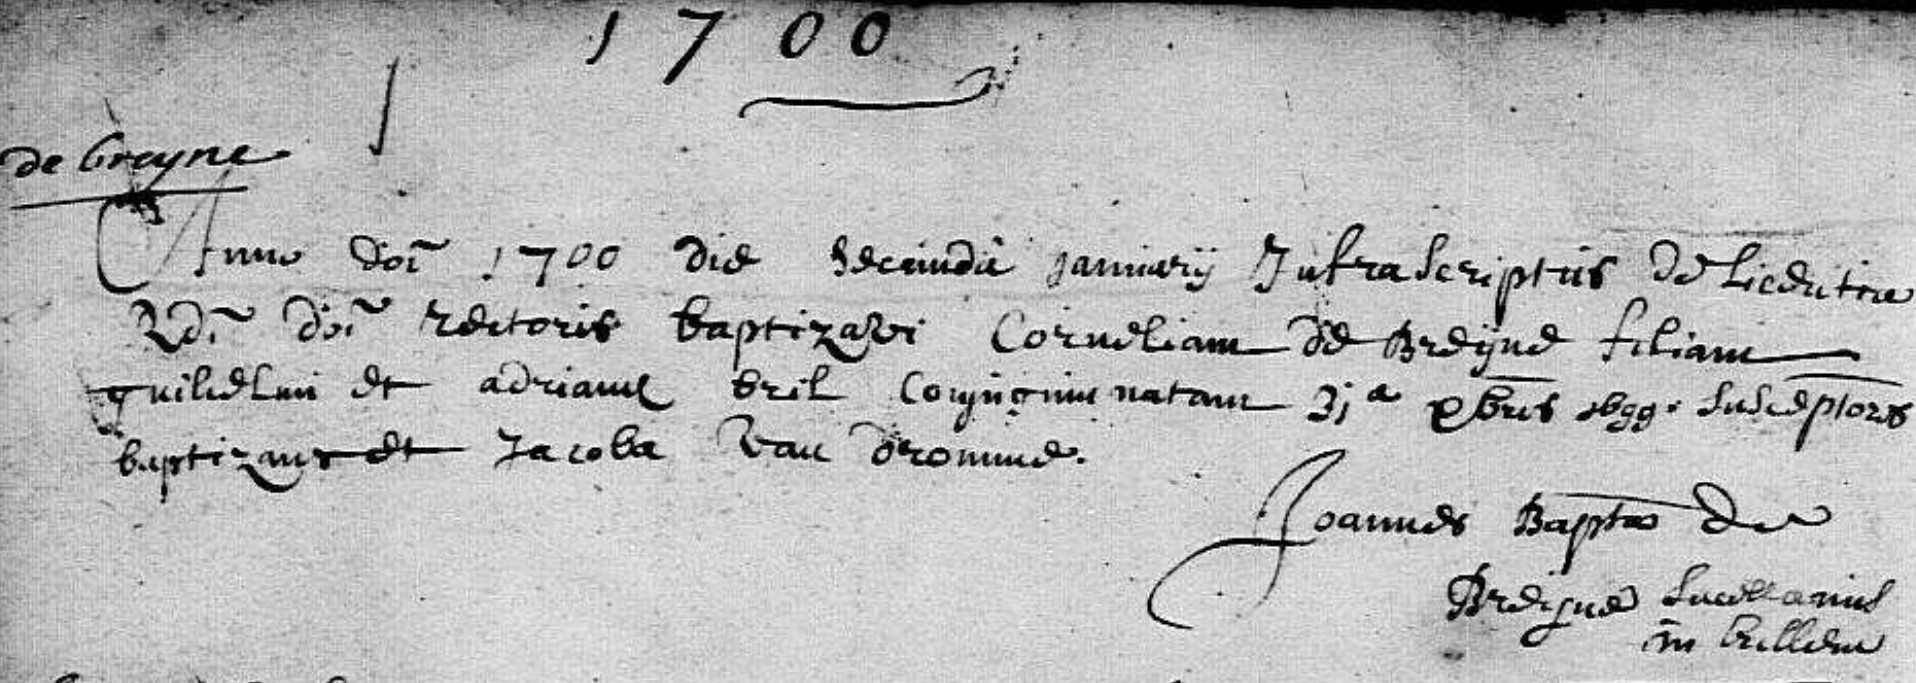 1700
de breyne
Anno doi 1700 die secunda january Infrascriptus de licentia
Rdi doi rectoris baptizavi Corneliam de Breyne filiam
guilielmi et adrianæ bril Conjugum natam 31a xbris 1699. Susceptores
baptizans et Jacoba Van dromme.
Joannes Bapta de
Breyne Sacellanus
in Killem